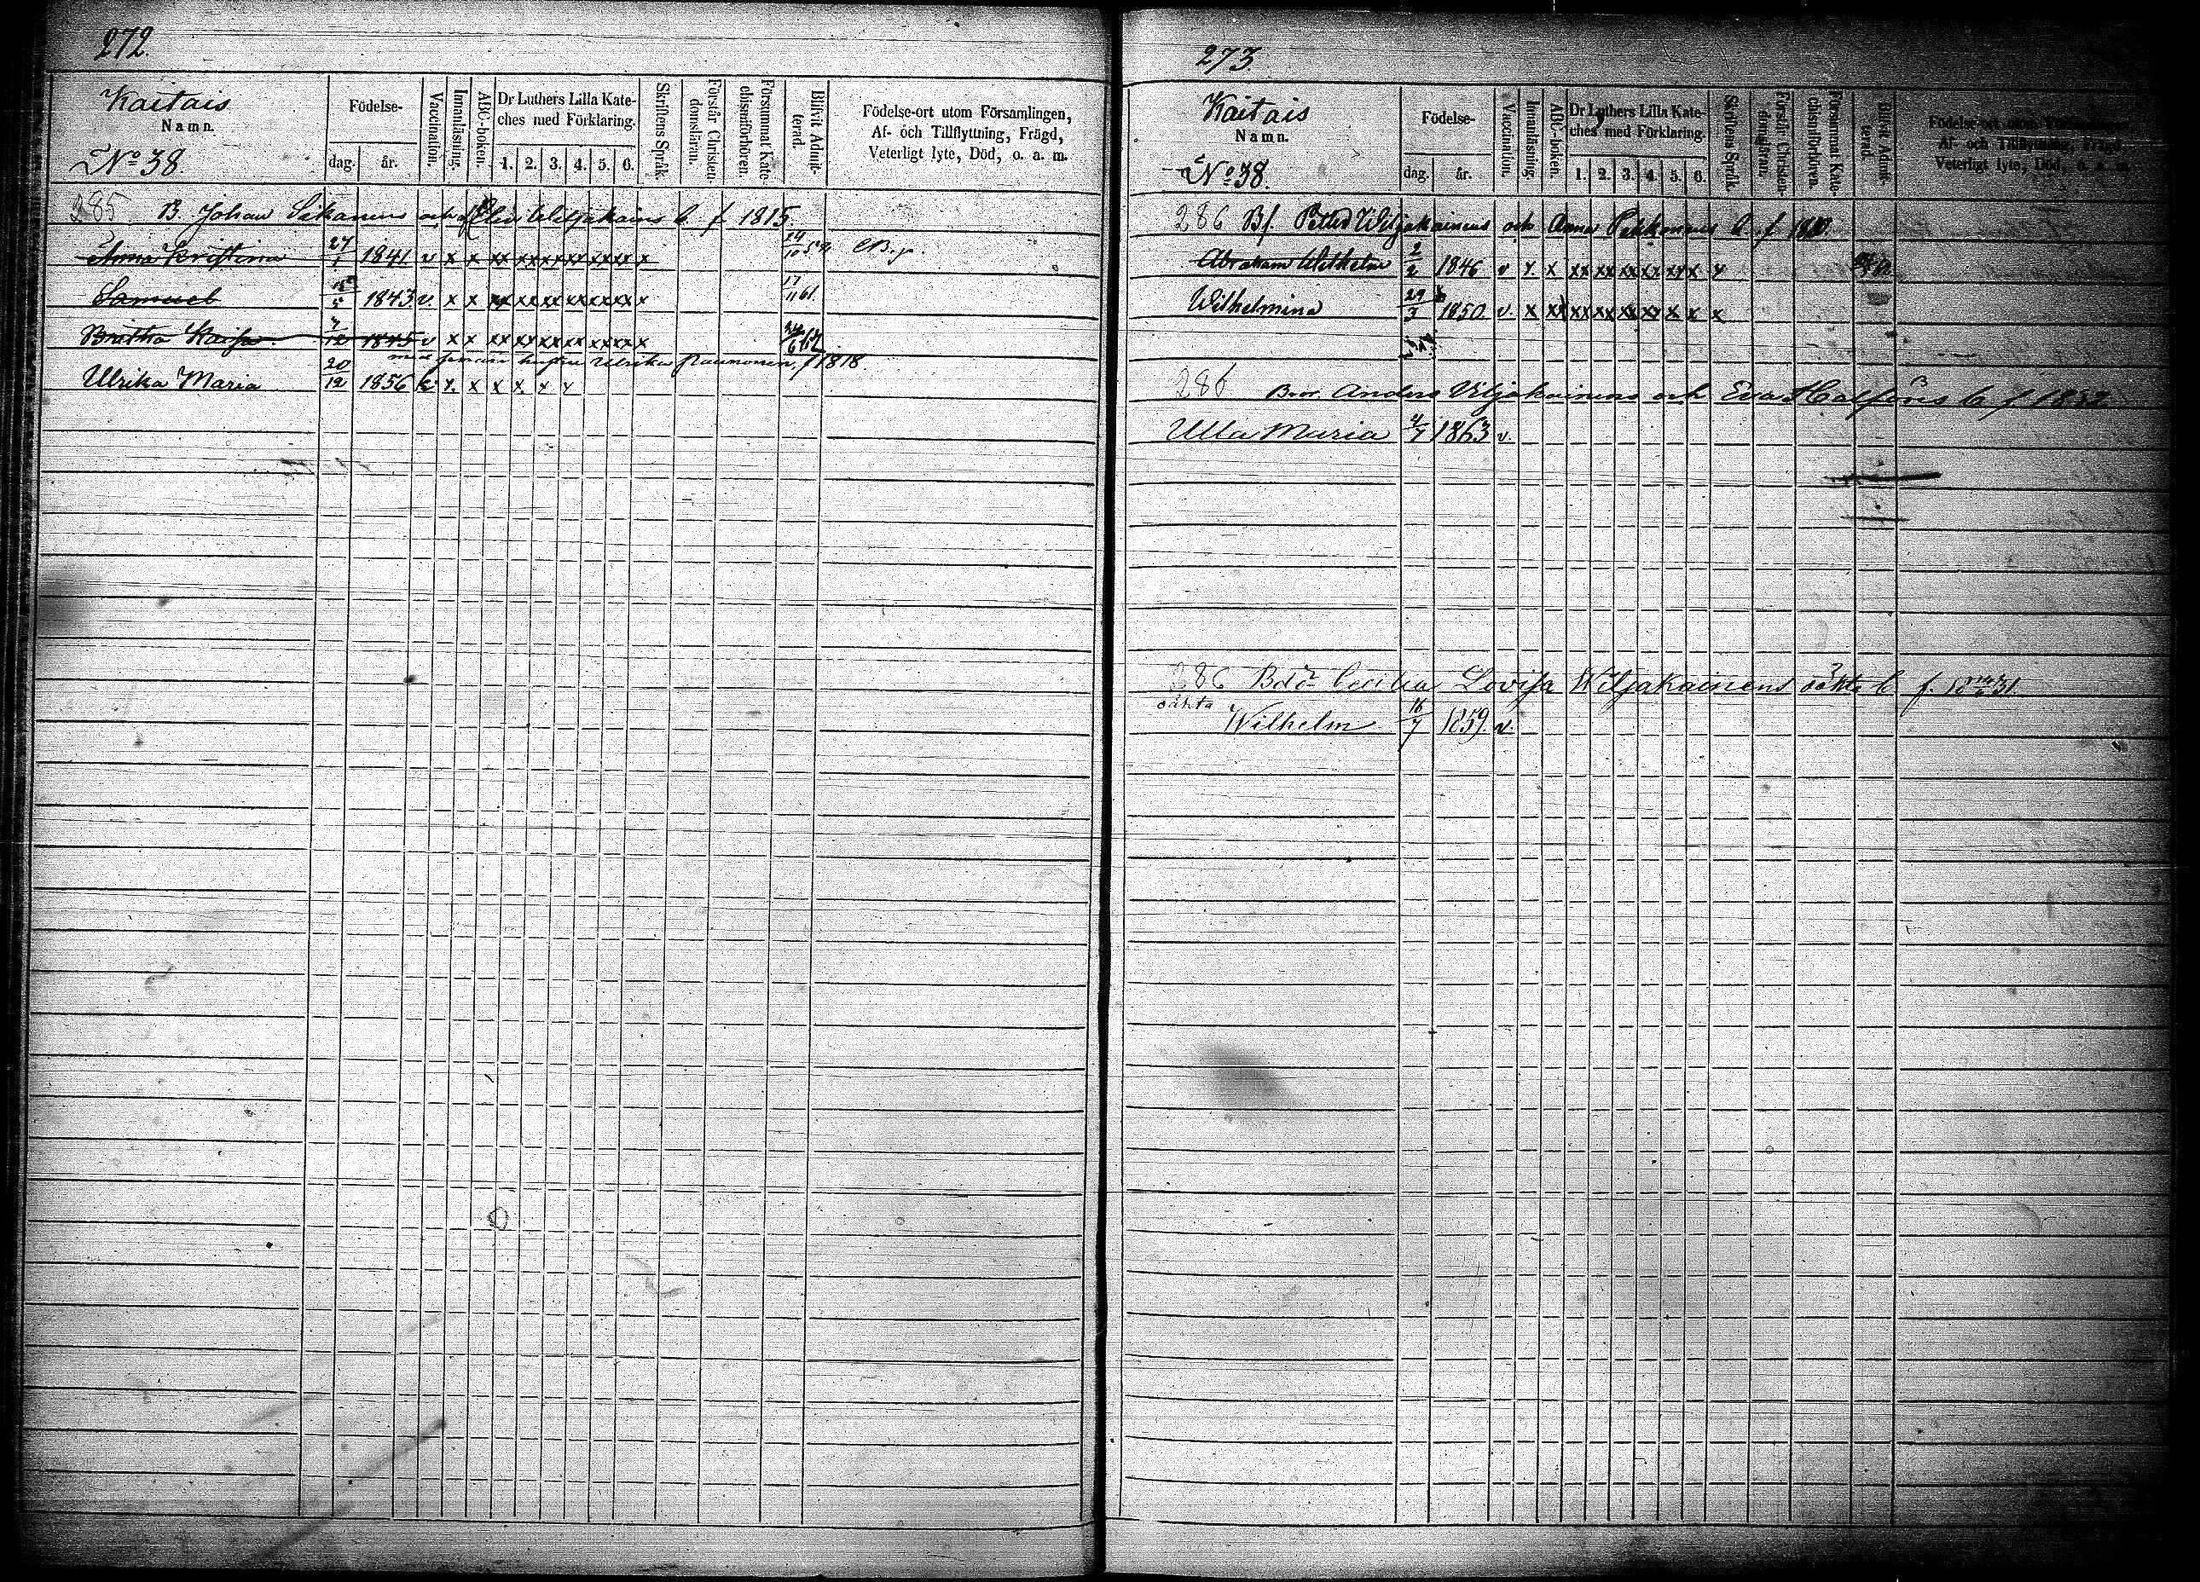 272.
Kaitais
Namn.
No 38.
Födelse-
dag. år.
Vaccination.
Innanläsning.
ABC-boken.
Dr Luthers Lilla Kate-
ches med Förklaring.
1. 2. 3. 4. 5. 6.
Skriftens Språk.
Förstår Christen-
domsläran.
Försummat Kate-
chismiförhören.
Blifvit Admit-
terad.
Födelse-ort utom Församlingen,
Af- och Tillflyttning, Frägd,
Veterligt lyte, Död, o. a. m.
285 B. Johan och Wiljakains b f 1815
Anna Kristina 27/1 1841 v x x xx xx xx xx xx xx x 14/10 59
Samuel 1843 v x x xx xx xx xx xx xx x 17/11 61
Britha Kaisa 7/12 1845 v x x xx xx xx xx xx xx x 24/6 62
med hustru Ulrika f 1818
Ulrika Maria 20/12 1856 x x x x x x
273.
Kaitais
Namn.
No 38.
Födelse-
dag. år.
Vaccination.
Innanläsning.
ABC-boken.
Dr Luthers Lilla Kate-
ches med Förklaring.
1. 2. 3. 4. 5. 6.
Skriftens Språk.
Förstår Christen-
domsläran.
Försummat Kate-
chismiförhören.
Blifvit Admit-
terad.
Födelse-ort utom Församlingen,
Af- och Tillflyttning, Frägd,
Veterligt lyte, Död, o. a. m.
286 Bf. Petter Wiljakainens och Anna Pekkonens b f
Abraham Wilhelm 2/2 1846 v x x xx xx xx xx xx x x
Wilhelmina 29/3 1850 v. x xx xx xx xx xx x x x
286 Bror Anders Viljakainens och Eva b f 1832
Ulla Maria 1863 v.
286 Bdr Cecilia Lovisa Wiljakainens oäkta b f. 31.
oäkta
Wilhelm 16/7 1859. v.